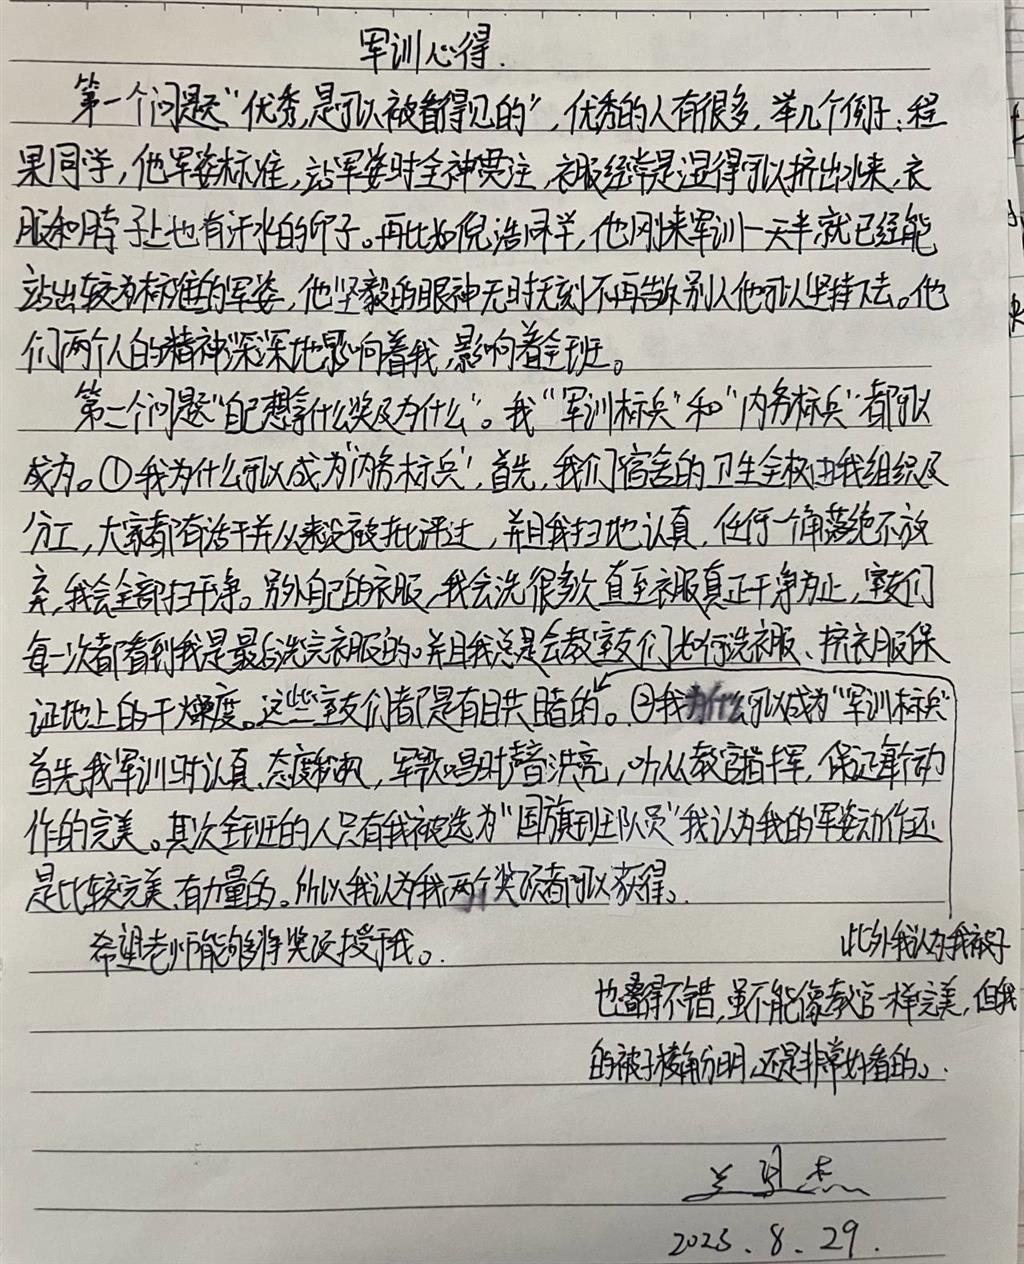 军训心得.
第一个问题“优秀,是可以被看得见的”,优秀的人有很多,举几个例子:程
果同学,他军姿标准,站军姿时全神贯注,衣服经常是湿得可以挤出水来,衣
服和脖子上也有汗水的印子。再比如倪浩同学,他刚来军训一天半就已经能
站出较为标准的军姿,他坚毅的眼神无时无刻不再告诉别人他可以坚持下去。他
们两个人的精神深深地影响着我,影响着全班。
第二个问题“自己想拿什么奖及为什么”。我“军训标兵”和“内务标兵”都可以
成为。①我为什么可以成为“内务标兵”,首先,我们宿舍的卫生全权由我组织及
分工,大家都有活干并从来没被批评过,并且我扫地认真,任何一个角落绝不放
弃,我会全部扫干净。另外自己的衣服,我会洗很多次直至衣服真正干净为止,室友们
每一次都看到我是最后洗完衣服的。并且我总是会教室友们如何洗衣服、挤衣服保
证地上的干燥度。这些室友们都是有目共睹的。②我为什么可以成为“军训标兵”
首先,我军训时认真、态度积极,军歌唱时声音洪亮,听从教官指挥,保证每个动
作的完美。其次全班的人只有我被选为“国旗班队员”我认为我的军姿动作还
是比较完美、有力量的。所以我认为我两个奖项都可以获得。
希望老师能够将奖项授于我。
此外我认为我被子
也叠得不错,虽不能像教官一样完美,但我
的被子棱角分明,还是非常好看的。
杰
2023.8.29.